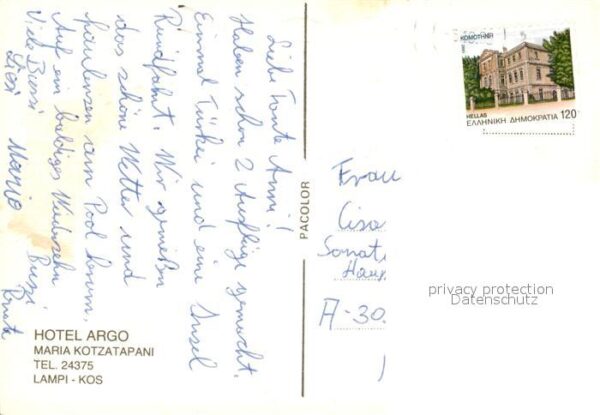 Liebe Tante Anni!
Haben schon 2 Ausflüge gemacht.
Einmal Türkei und eine Insel
Rundfahrt. Wir genießen
das schöne Wetter und
faulenzen am Pool herum.
Auf ein baldiges Wiedersehn
Viele Bussi Bussi
Liesi Mario Renate
HOTEL ARGO
MARIA KOTZATAPANI
TEL. 24375
LAMPI - KOS
PACOLOR
ΚΟΜΟΤΗΝΗ
HELLAS
ΕΛΛΗΝΙΚΗ ΔΗΜΟΚΡΑΤΙΑ 120
Frau
Cisa
Sonat
Haup
A-30
privacy protection
Datenschutz